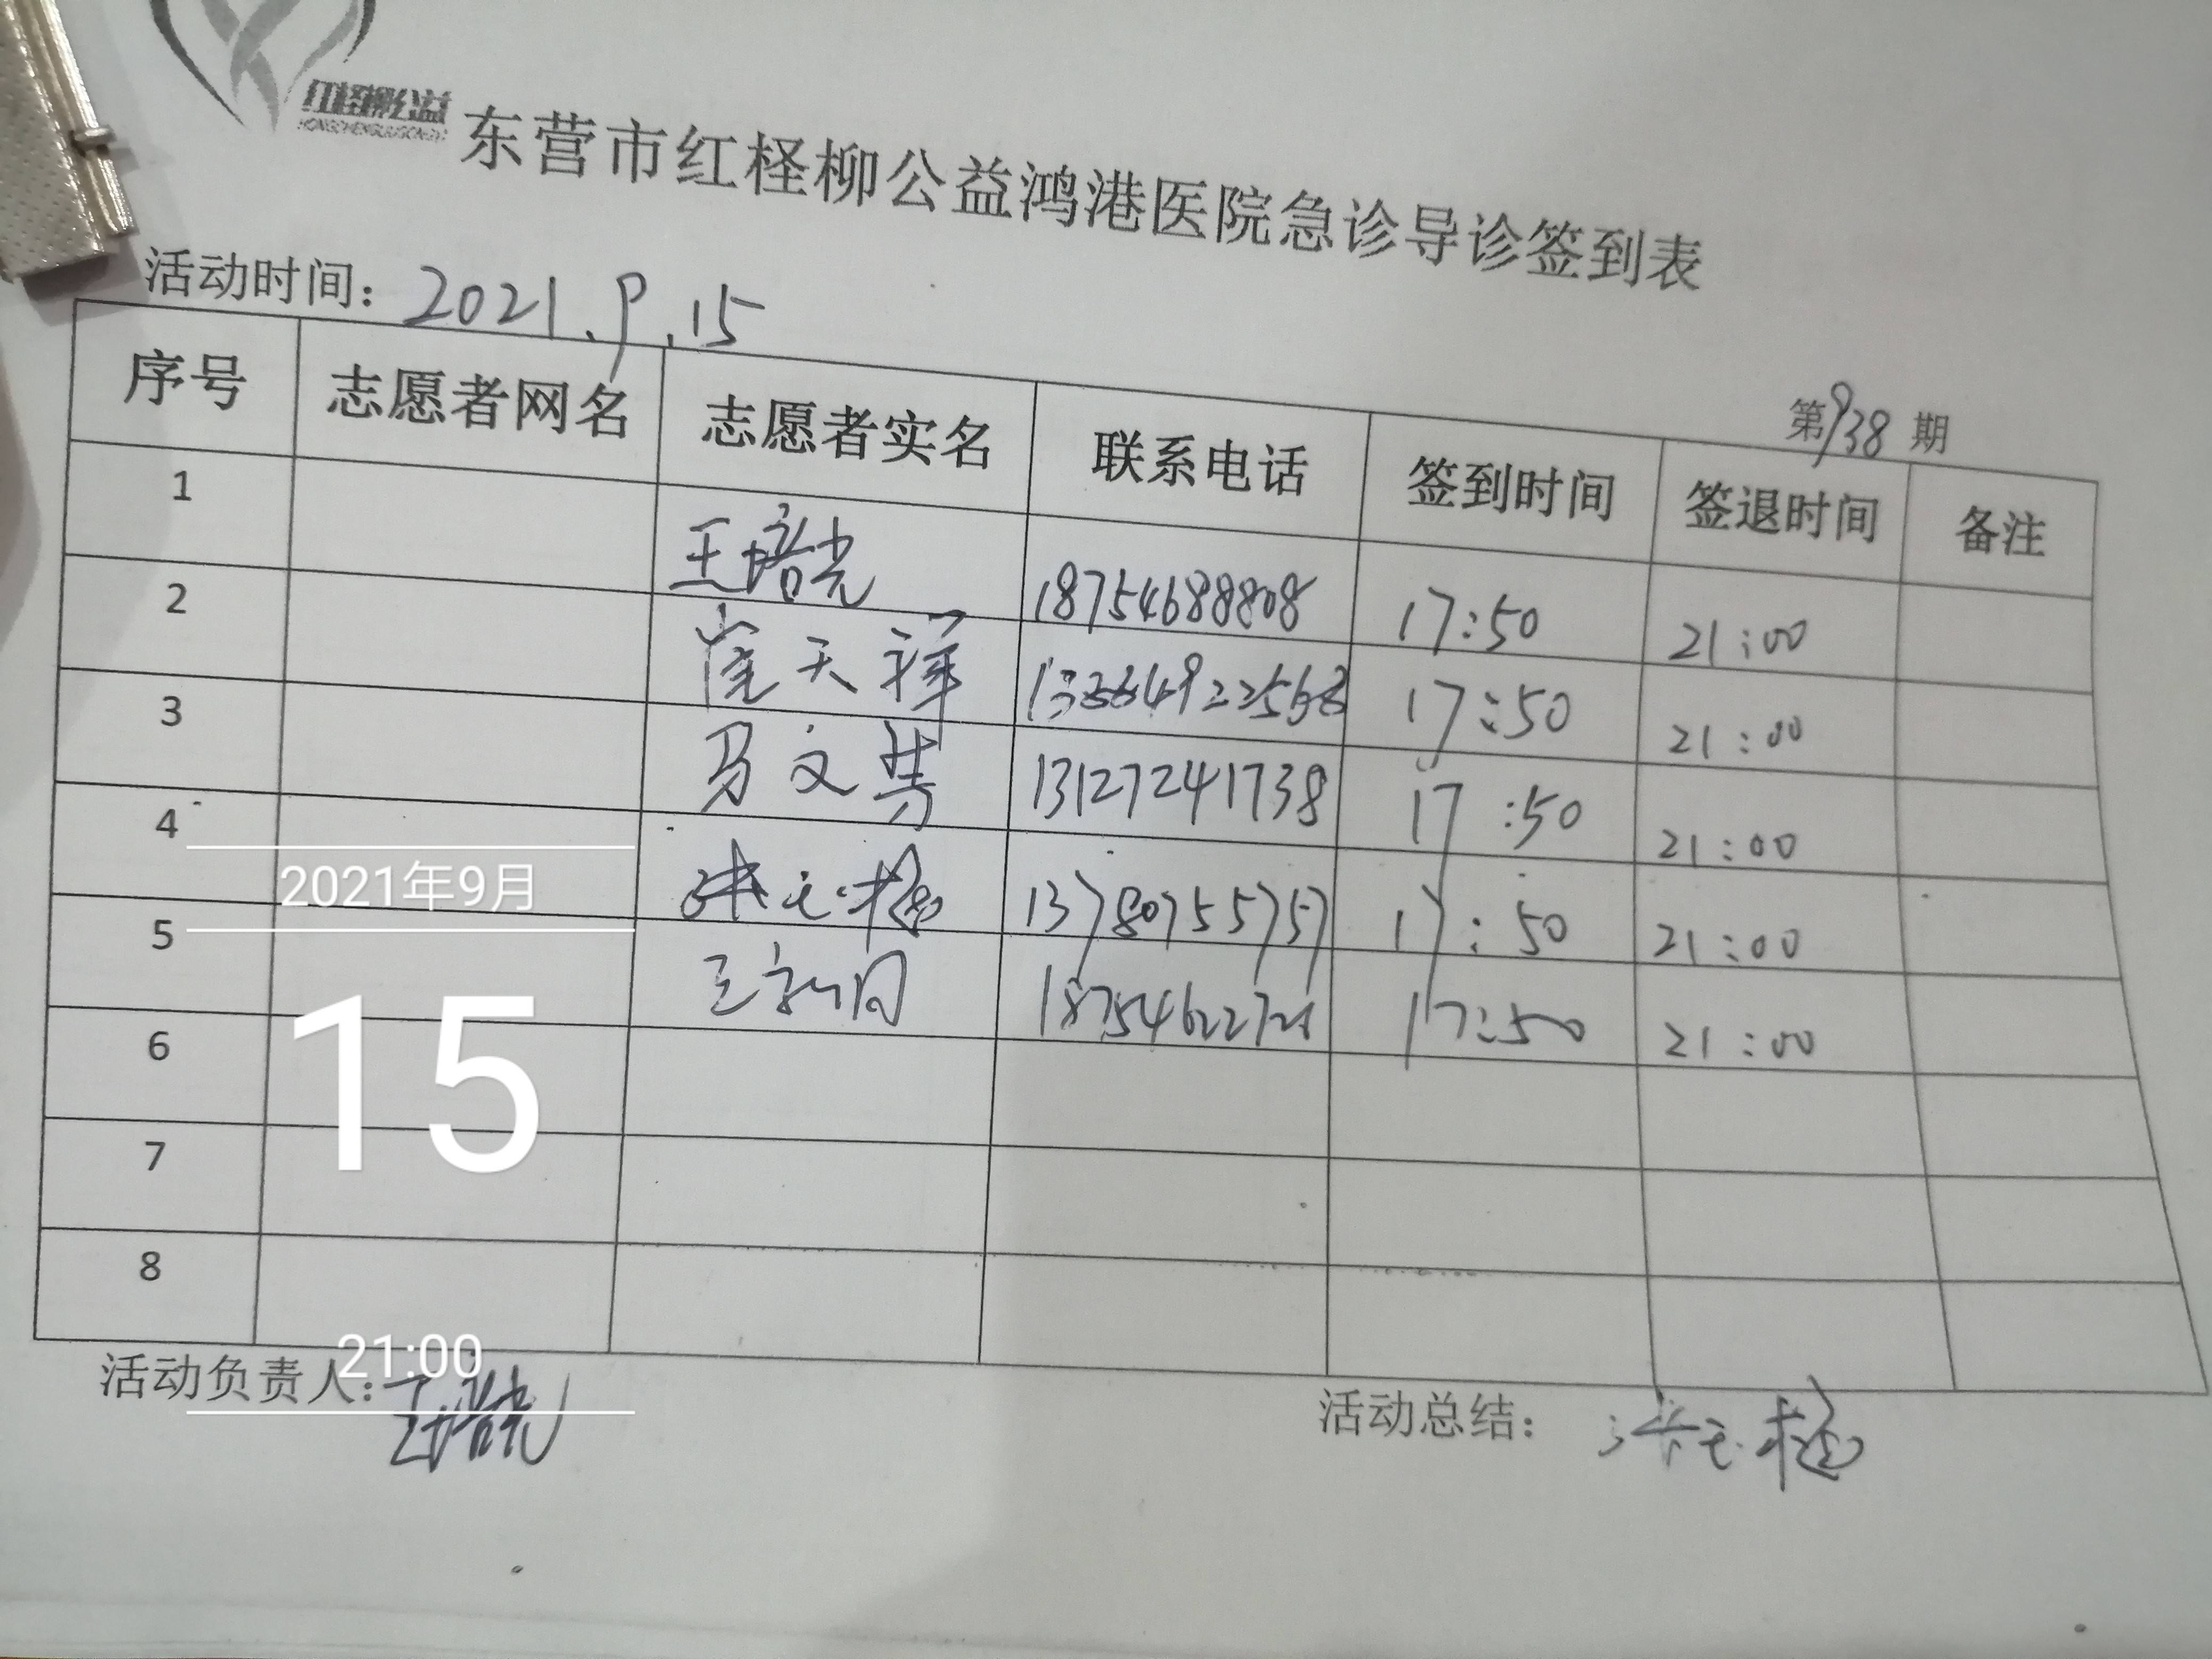 红柽柳公益
东营市红柽柳公益鸿港医院急诊导诊签到表
活动时间：2021.9.15
第938期
序号 志愿者网名 志愿者实名 联系电话 签到时间 签退时间 备注
1 王培光 18754688808 17:50 21:00
2 崔天祥 17:50 21:00
3 马文 13127241738 17:50 21:00
4 13780755757 17:50 21:00
5 王 17:50 21:00
6
7
8
2021年9月
15
21:00
活动负责人：王培光
活动总结：